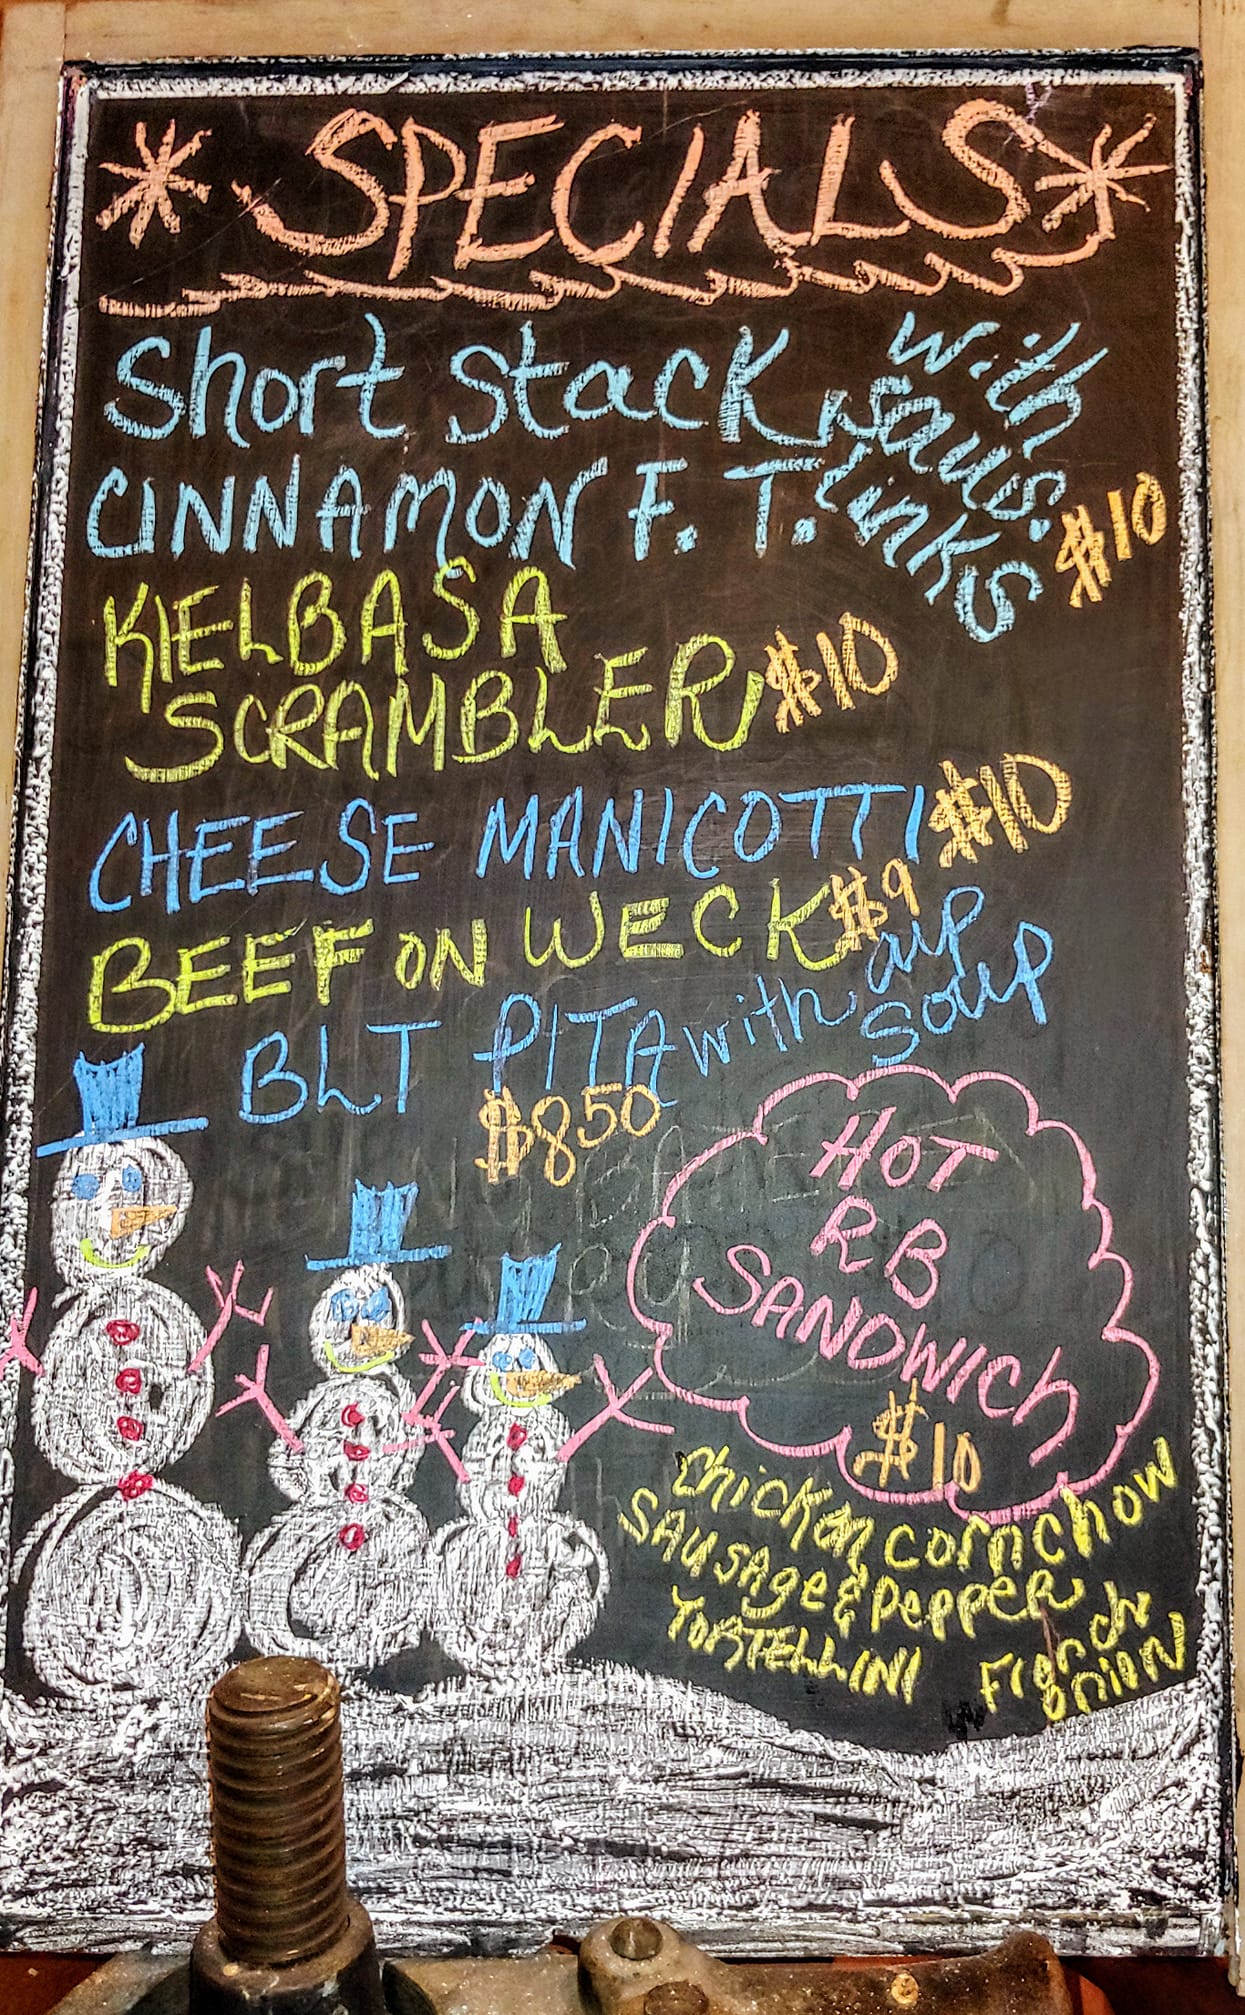 * SPECIALS *
Short Stack
CINNAMON F. T.
with
saus.
links
$10
KIELBASA
SCRAMBLER $10
CHEESE MANICOTTI $10
BEEF ON WECK $9
BLT PITA with cup
soup
$850
HOT
RB
SANDWICH
$10
Chicken corn chow
SAUSAge & PePPER
TORTELLINI
French
Onion